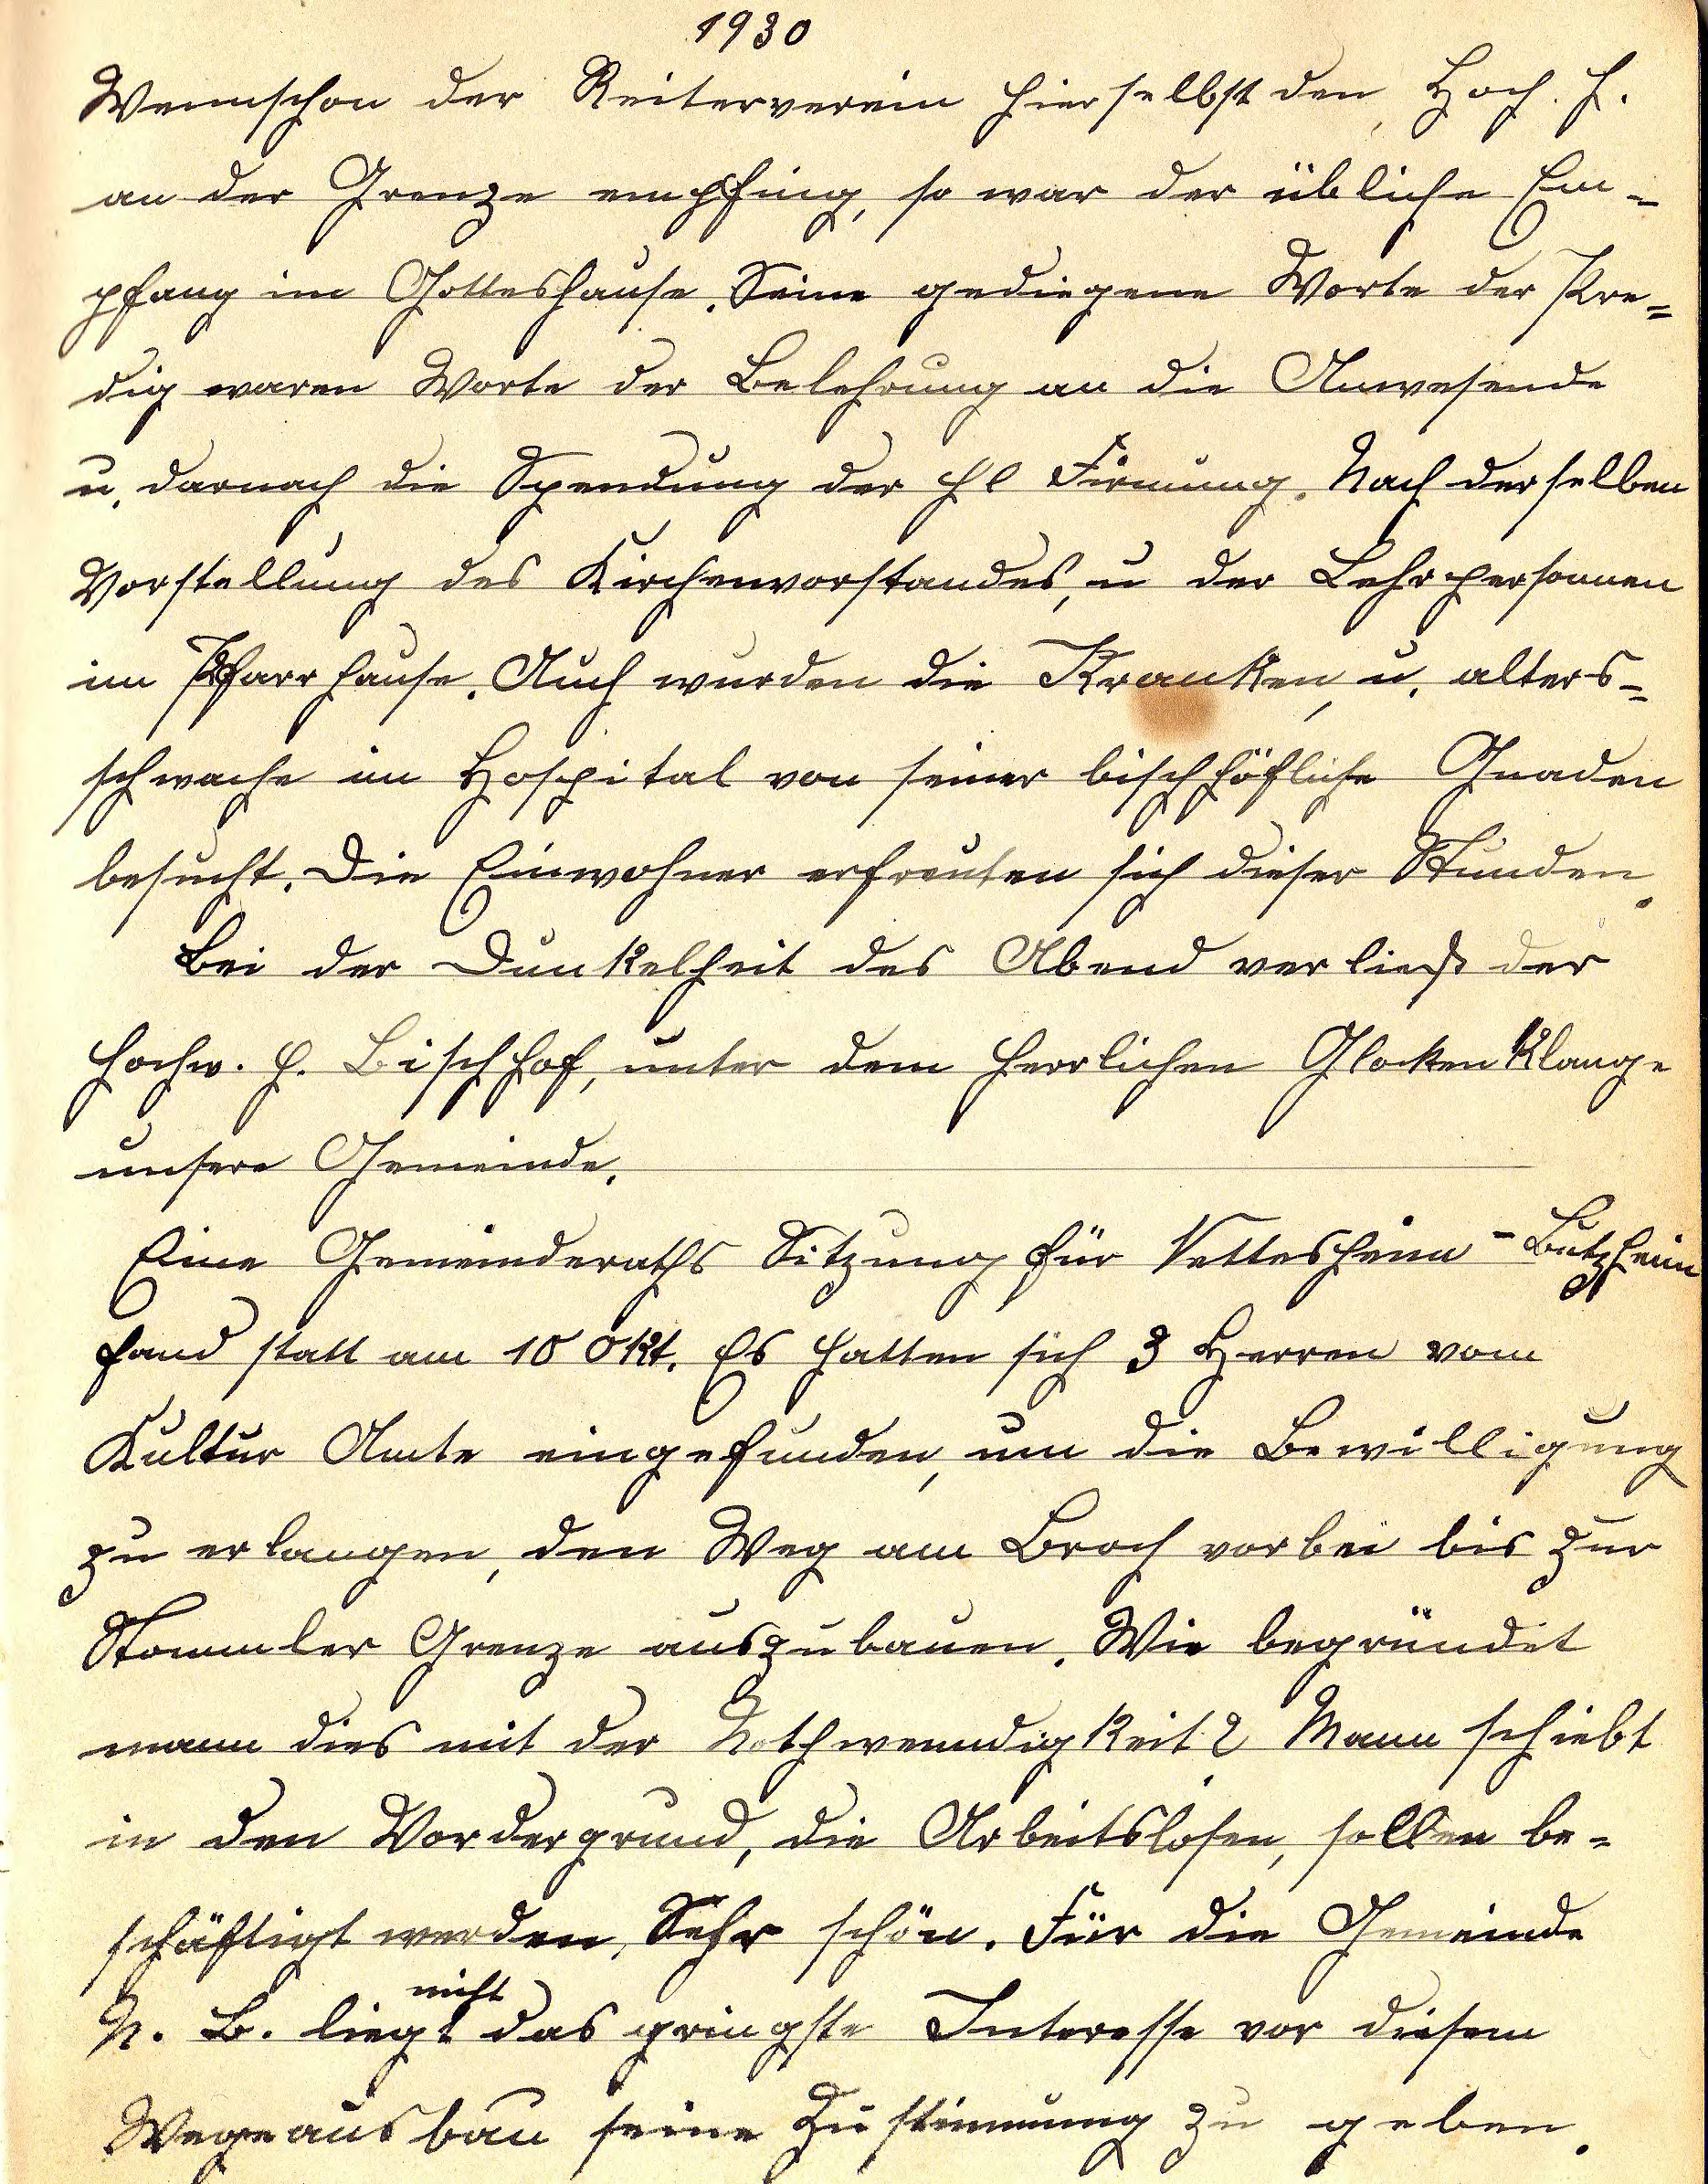 1930
Wennschon der Reiterverein hierselbst den Hoch. H.
an der Grenze empfing, so war der übliche Em-
pfang im Gotteshause. Seine gediegene Worte der Pre-
dig waren Worte der Belehrung an die Anwesende
u. darnach die Spendung der hl Firmung. Nach derselben
Vorstellung des Kirchenvorstandes, u der Lehrpersonen
im Pfarrhause. Auch wurden die Kranken, u. alters-
schwache im Hospital von seiner bischhöfliche Gnaden
besucht. Die Einwohner erfreuten sich dieser Stunden.
Bei der Dunkelheit des Abend verließ der
hochw. H. Bischhof, unter dem herrlichen Glockenklange
unsere Gemeinde.
Eine Gemeinderaths Sitzung für Nettesheim-Butzheim
fand statt am 10 Okt. Es hatten sich 3 Herren vom
Kultur Amte eingefunden, um die Bewilligung
zu erlangen, den Weg am Broch vorbei bis zur
Stommler Grenze auszubauen. Wie begründet
mann dies mit der Nothwenndigkeit? Mann schiebt
in den Vordergrund, die Arbeitslosen, sollen be-
schäftigt werden, Sehr schön. Für die Gemeinde
N. B. liegt nicht das gringste Interesse vor diesem
Wegeausbau seine Zustimmung zu geben.